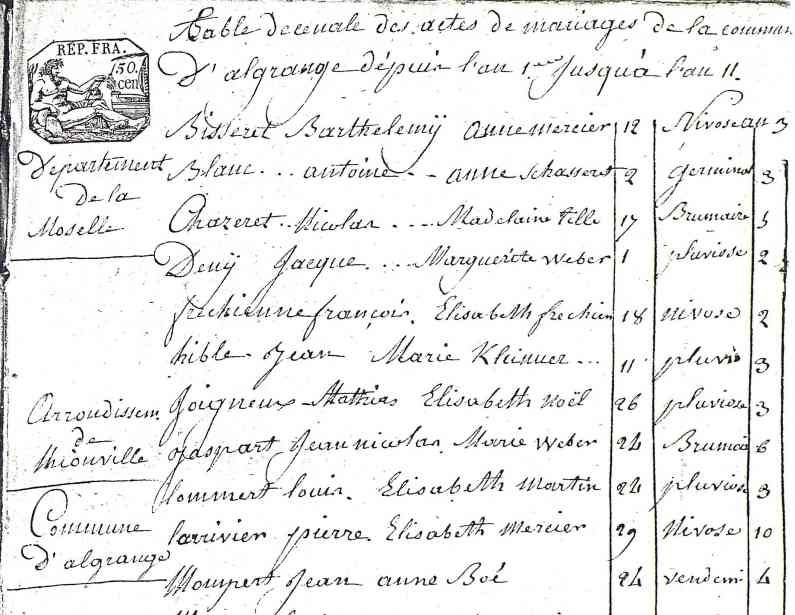 RÉP. FRA.
150.
cen
Table decenale des actes de mariages de la commun
D'algrange dépuis l'an 1er Jusqu'à l'an 11.
Département
de la
Moselle
Bisseret Barthelemÿ anne mercier 12 Nivose an 3
Blanc . . antoine . . anne Schasseret 2 Germinal 3
Chazeret . . Nicolas . . . Madelaine Pelle 17 Brumaire 5
Denÿ Jacque . . . Marguerite Weber 1 pluviose 2
frechienne françois. Elisabeth frechien 18 nivose 2
hible. Jean Marie Kleinuer . . . 11 pluvio 3
Arroudissem
de
thionville
Joigneux Mathias Elisabeth noël 26 pluviose 3
Jaspart Jean nicolas. Marie Weber 24 Brumai 6
lommert louis. Elisabeth Martin 24 pluviose 3
Commune
D'algrange
larrivier pierre. Elisabeth Mercier 29 Nivose 10
Mompert Jean anne Boé 24 vendemi 4